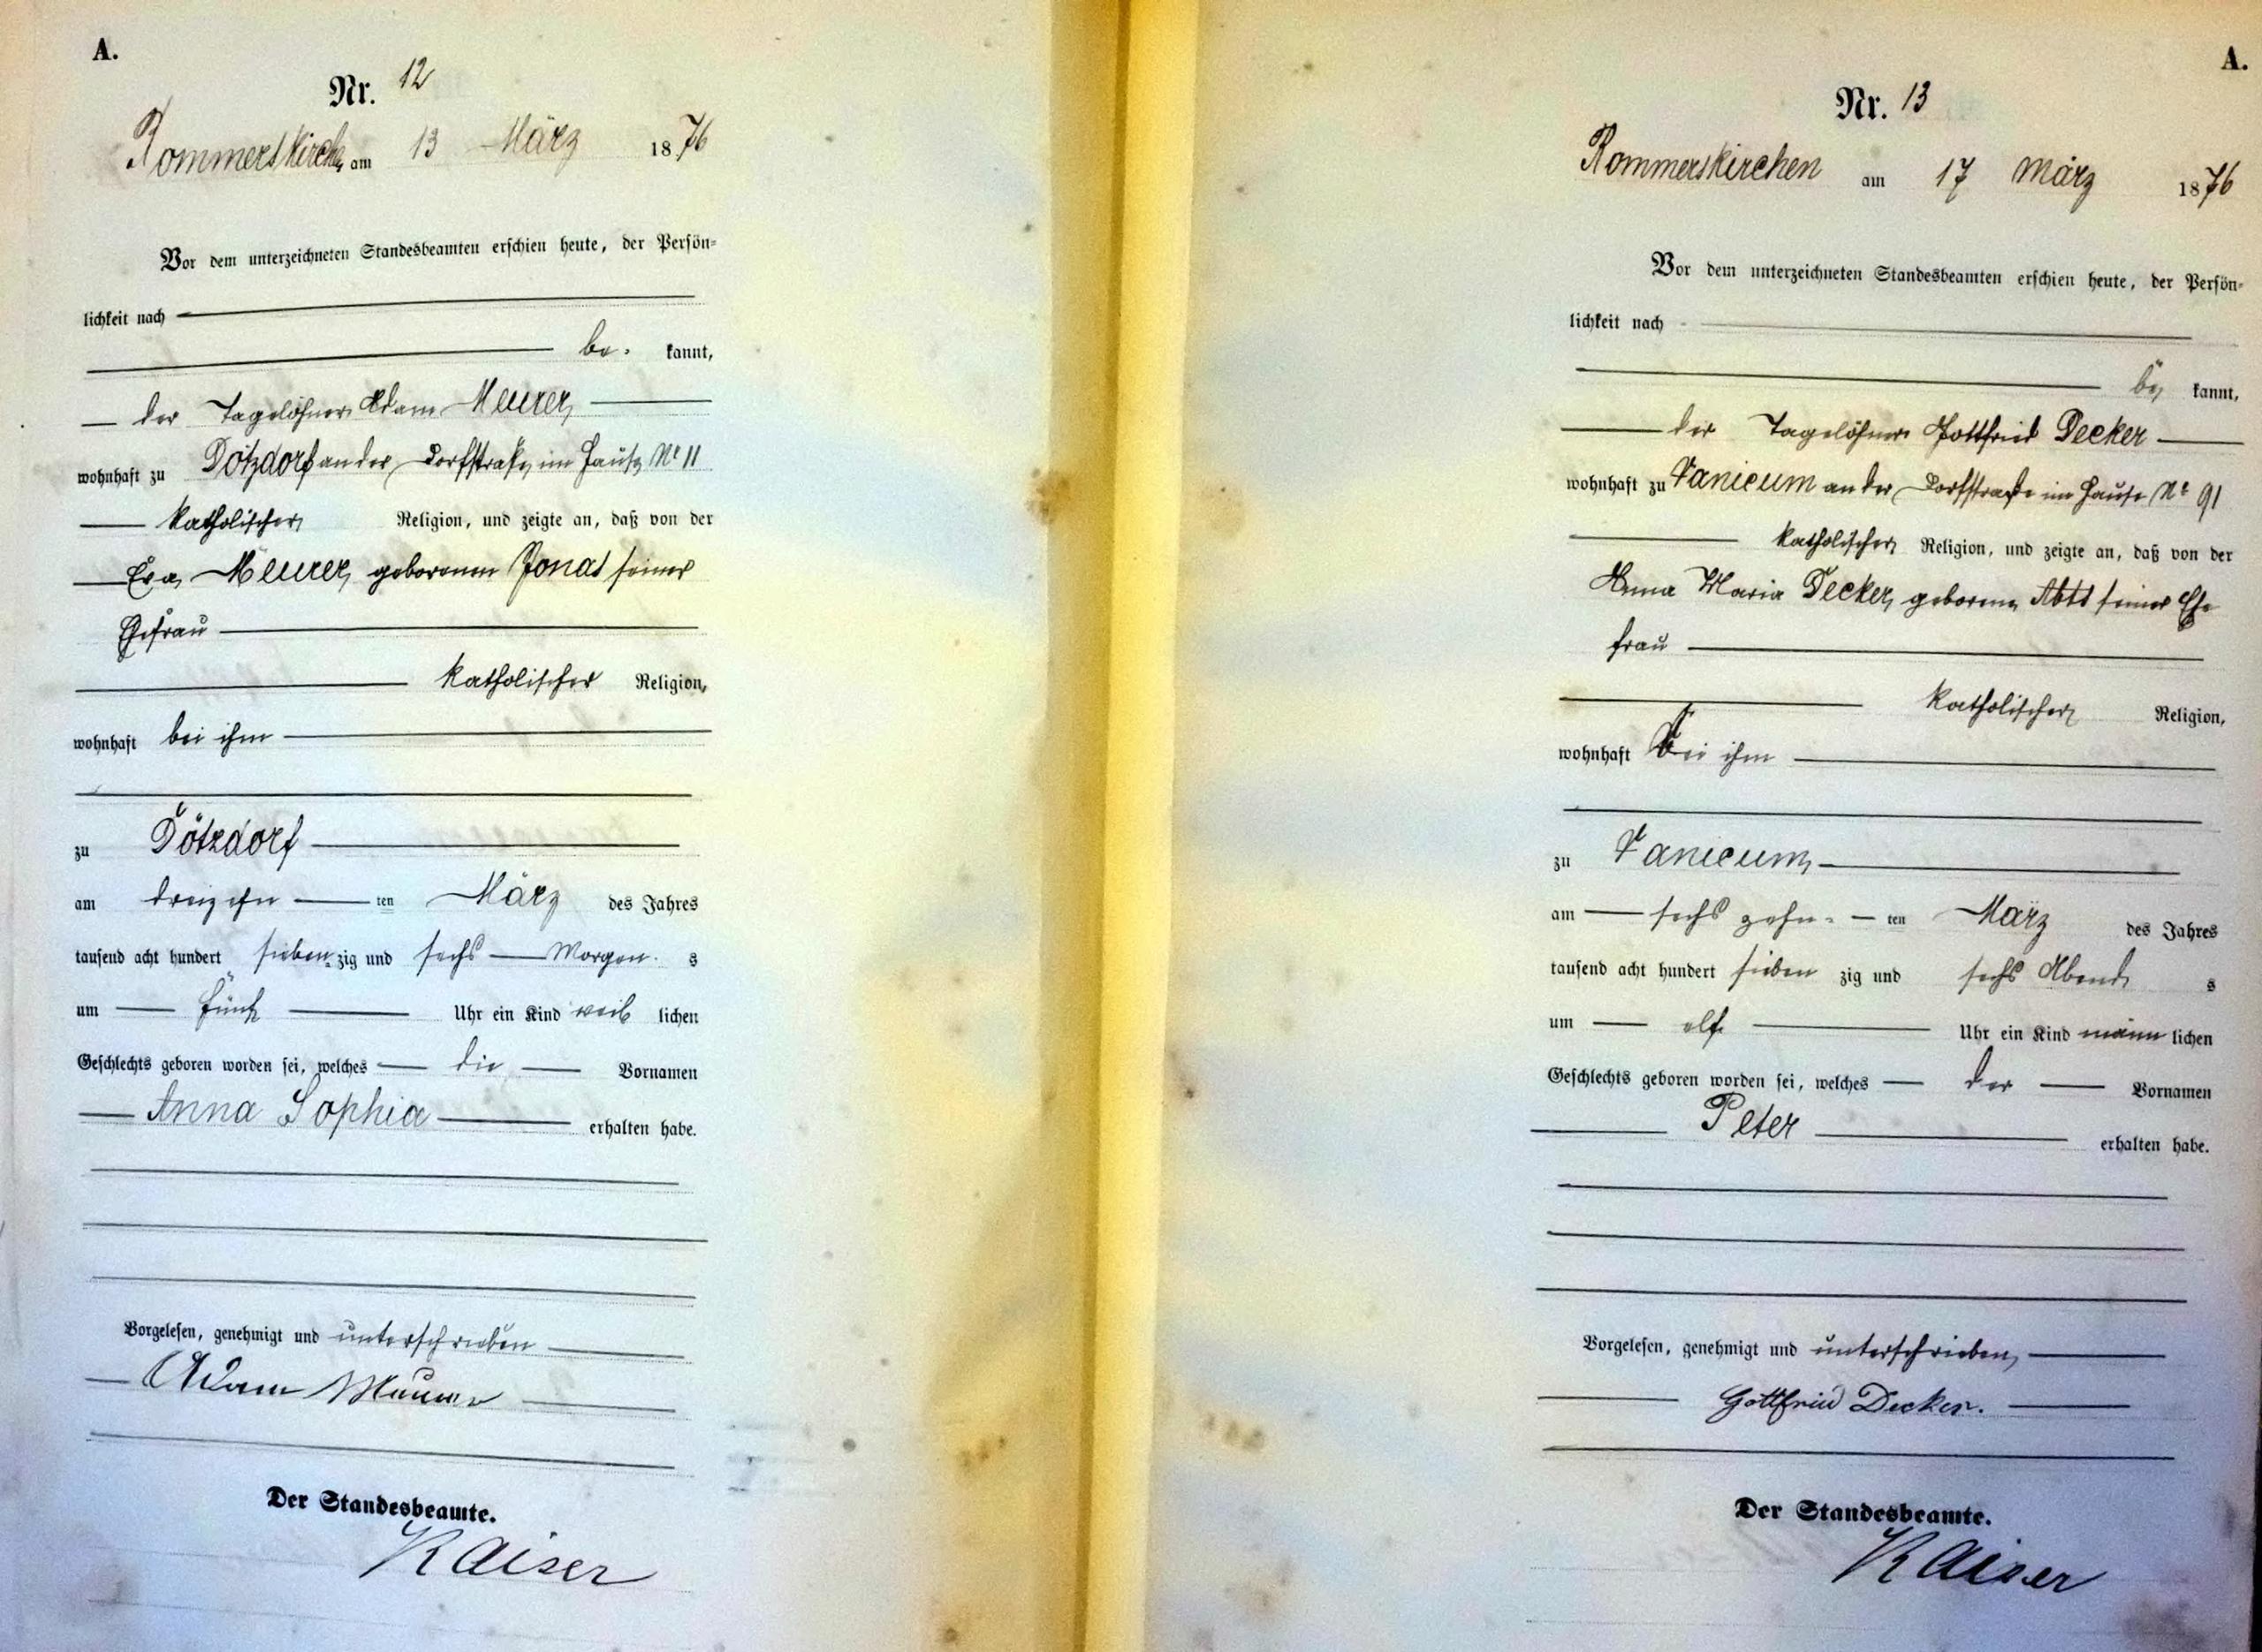 A.
Nr. 12
Rommerskirchen am 13 März 1876
Vor dem unterzeichneten Standesbeamten erschien heute, der Persön-
lichkeit nach
be. kannt,
der Tagelöhner Adam Meurer
wohnhaft zu Dötzdorf an der Dorfstraße im Hause No 11
katholischer Religion, und zeigte an, daß von der
Eva Meurer, geborenen Jonas seiner
Ehefrau
katholischer Religion,
wohnhaft bei ihm
zu Dötzdorf
am dreizehn ten März des Jahres
tausend acht hundert sieben zig und sechs Morgen s
um fünf Uhr ein Kind weib lichen
Geschlechts geboren worden sei, welches die Vornamen
Anna Sophia erhalten habe.
Vorgelesen, genehmigt und unterschrieben
Adam Meurer
Der Standesbeamte.
Kaiser
A.
Nr. 13
Rommerskirchen am 17 März 1876
Vor dem unterzeichneten Standesbeamten erschien heute, der Persön-
lichkeit nach
be kannt,
der Tagelöhner Gottfried Decker
wohnhaft zu Vanicum an der Dorfstraße im Hause No 91
katholischer Religion, und zeigte an, daß von der
Anna Maria Decker, geborene Abts seiner Ehe
frau
katholischer Religion,
wohnhaft bei ihm
zu Vanicum,
am sechs zehn- ten März des Jahres
tausend acht hundert sieben zig und sechs Abend s
um elf Uhr ein Kind männ lichen
Geschlechts geboren worden sei, welches der Vornamen
Peter erhalten habe.
Vorgelesen, genehmigt und unterschrieben,
Gottfried Decker.
Der Standesbeamte.
Kaiser